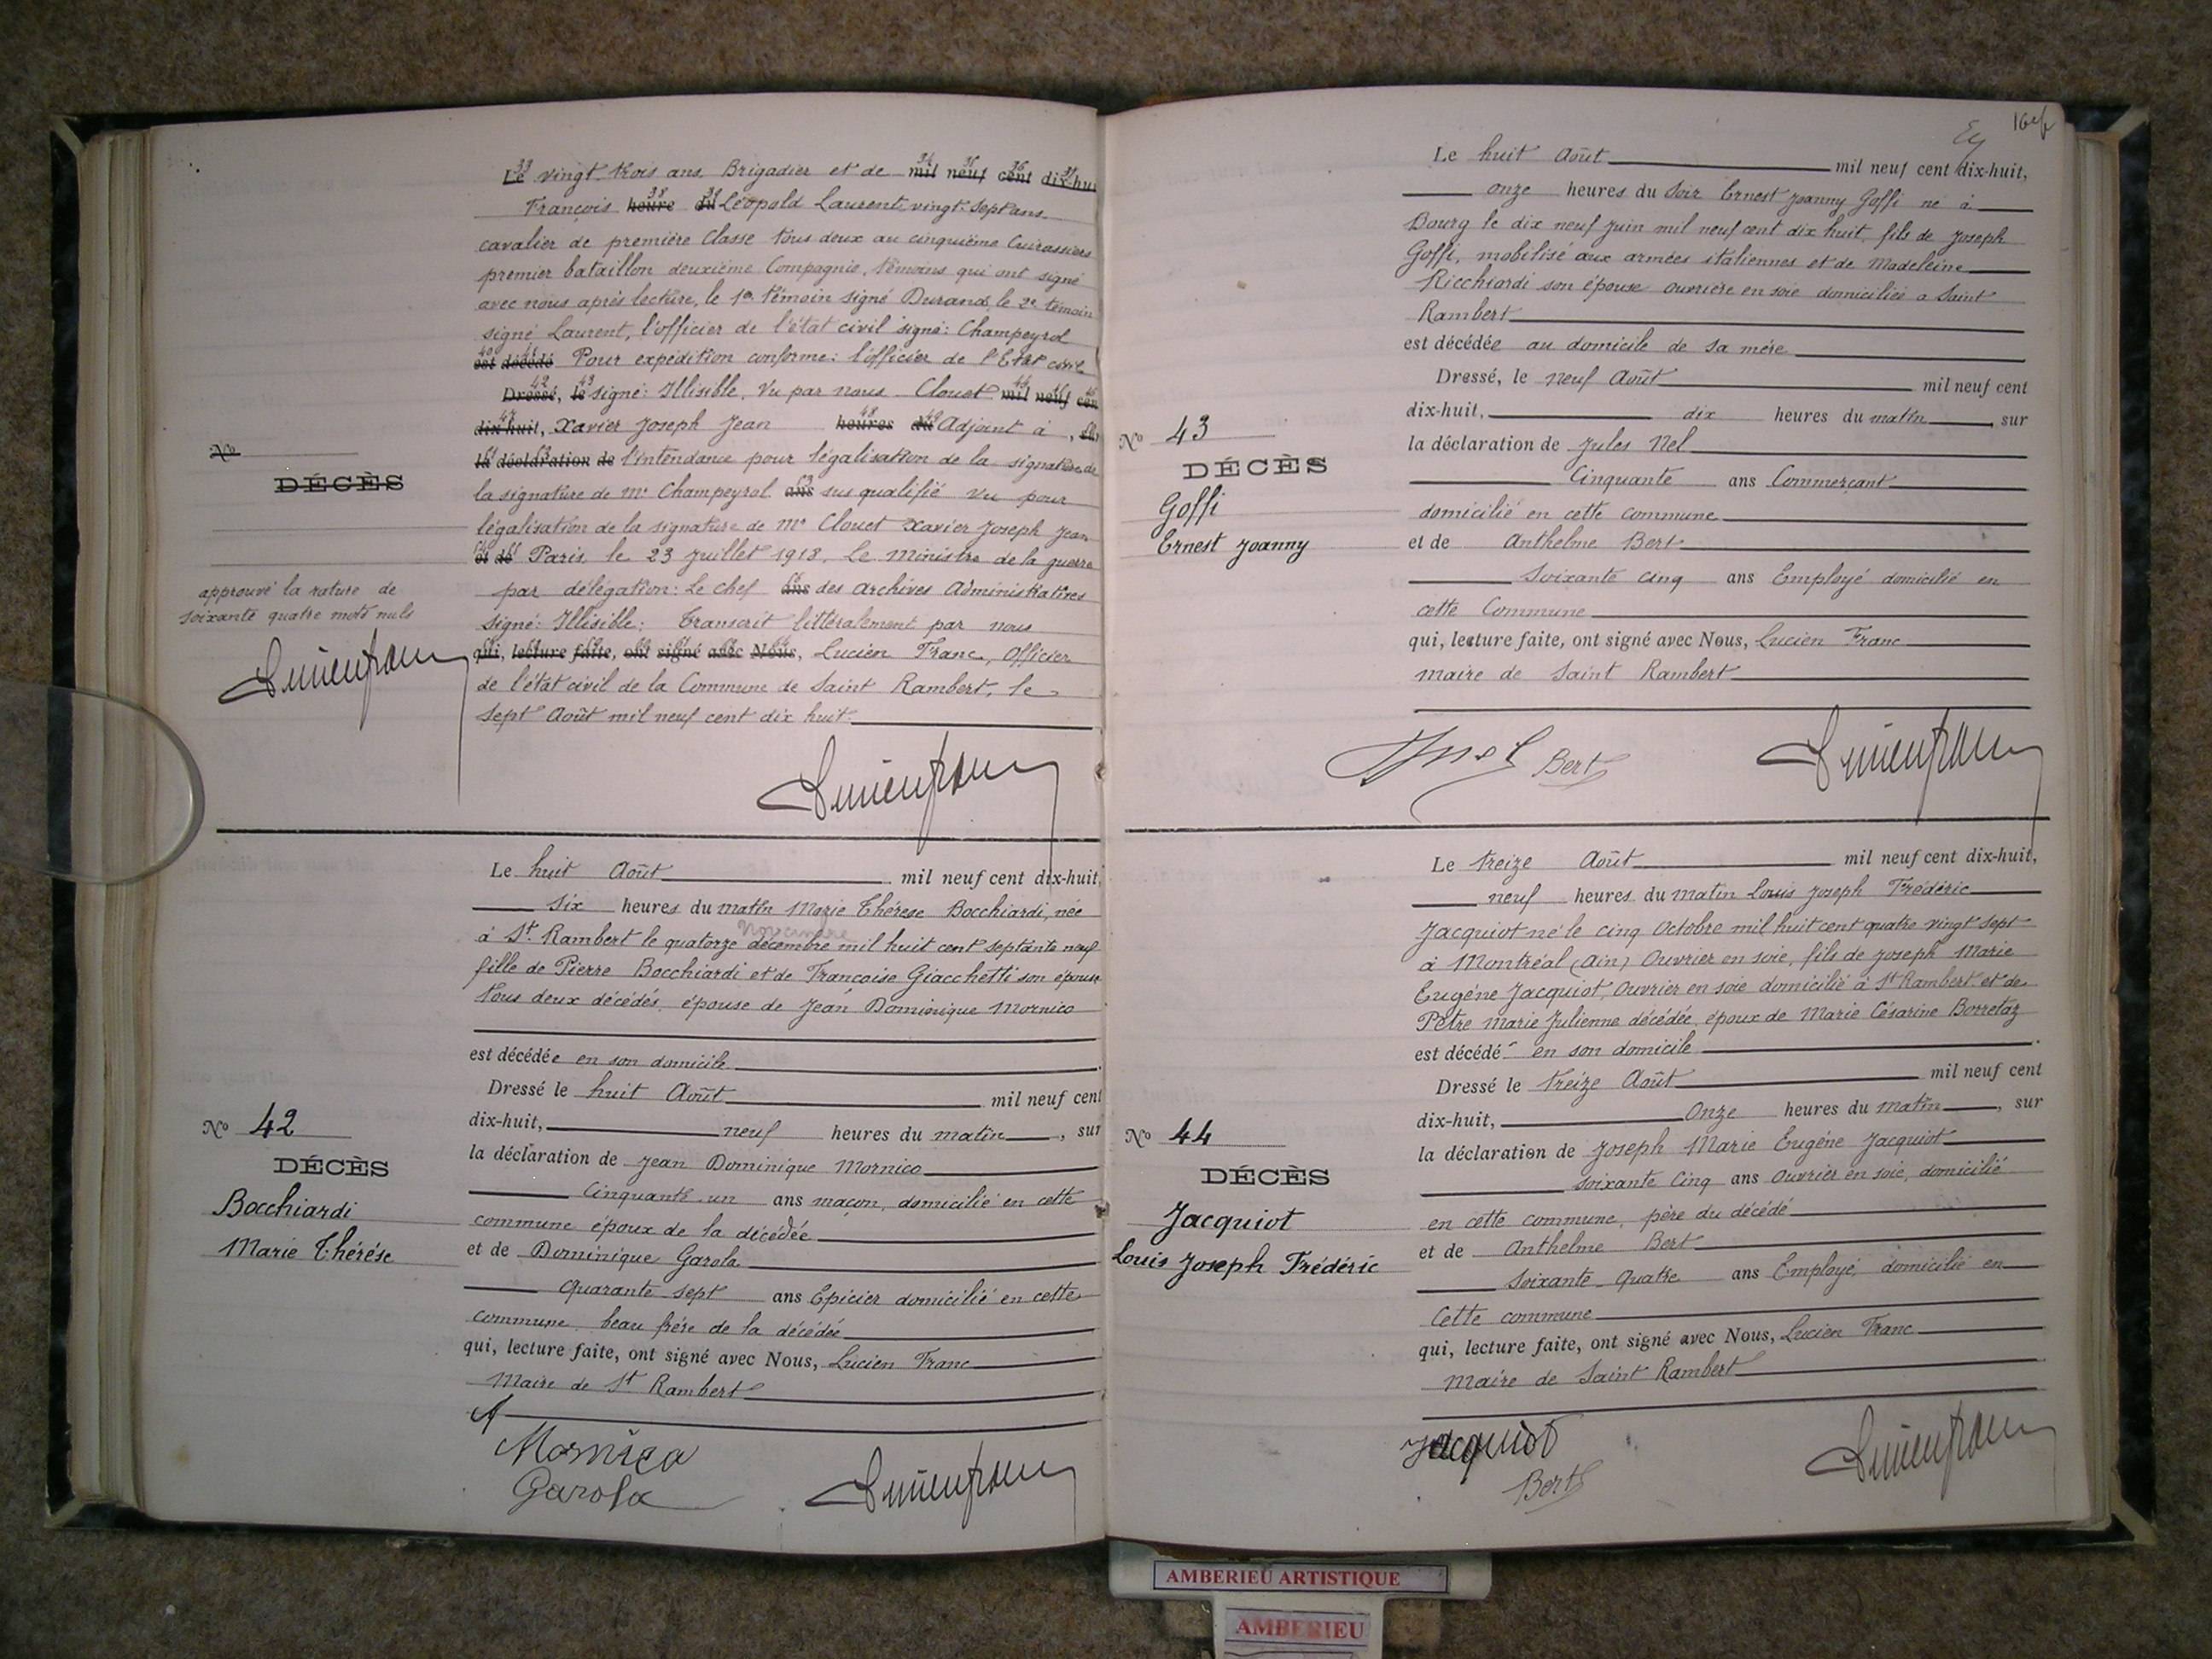 Le vingt trois ans Brigadier et de mil neuf cent dix-hui
François heure du Léopold Laurent vingt-sept ans
cavalier de première Classe tous deux au cinquième Cuirassiers
premier bataillon deuxième Compagnie, témoins qui ont signé
avec nous après lecture, le 1er témoin signé Durand, le 2e témoin
signé Laurent, l'officier de l'état civil signé: Champeyrol
est décédé Pour expédition conforme: l'officier de l'Etat civil
Dressé, le signé: Illisible, Vu par nous Clouet mil neuf cen
dix-huit, Xavier Joseph Jean heures du Adjoint à ,
la déclaration de l'intendance pour légalisation de la signature de
la signature de Mr Champeyrol ans sus qualifié Vu pour
légalisation de la signature de Mr Clouet Xavier Joseph Jean
et de Paris, le 23 Juillet 1918. Le Ministre de la guerre
par délégation: Le Chef ans des Archives Administratives
signé: Illisible: Transcrit littéralement par nous
qui, lecture faite, ont signé avec Nous, Lucien Franc, Officier
de l'état civil de la Commune de Saint Rambert, le
sept Août mil neuf cent dix huit.
No
DÉCÈS
approuvé la rature de
soixante quatre mots nuls
Lucien Franc
Lucien Franc
Le huit Août mil neuf cent dix-huit,
six heures du matin Marie Thérèse Bocchiardi, née
Novembre
à St. Rambert le quatorze décembre mil huit cent septante neuf
fille de Pierre Bocchiardi et de Françoise Giacchetti son épouse
tous deux décédés, épouse de Jean Dominique Mornico
est décédée en son domicile
Dressé le huit Août mil neuf cent
dix-huit, neuf heures du matin, sur
la déclaration de Jean Dominique Mornico
Cinquante un ans maçon, domicilié en cette
commune époux de la décédée
et de Dominique Garola
quarante sept ans Epicier domicilié en cette
commune beau frère de la décédée
qui, lecture faite, ont signé avec Nous, Lucien Franc
Maire de St Rambert
No 42
DÉCÈS
Bocchiardi
Marie Thérèse
Mornico
Garola
Lucien Franc
Le huit Août mil neuf cent dix-huit,
onze heures du soir Ernest Joanny Goffi né à
Bourg le dix neuf Juin mil neuf cent dix huit, fils de Joseph
Goffi, mobilisé aux armées italiennes et de Madeleine
Ricchiardi son épouse ouvrière en soie domiciliée a Saint
Rambert
est décédée au domicile de sa mère
Dressé, le neuf Août mil neuf cent
dix-huit, dix heures du matin, sur
la déclaration de Jules Nel
Cinquante ans Commerçant
domicilié en cette commune
et de Anthelme Bert
Soixante cinq ans Employé domicilié en
cette Commune
qui, lecture faite, ont signé avec Nous, Lucien Franc
maire de Saint Rambert
No 43
DÉCÈS
Goffi
Ernest Joanny
Bert
Lucien Franc
Le treize Août mil neuf cent dix-huit,
neuf heures du matin Louis Joseph Frédéric
Jacquiot né le cinq Octobre mil huit cent quatre vingt sept
à Montréal (Ain) Ouvrier en soie, fils de Joseph Marie
Eugène Jacquiot, Ouvrier en soie domicilié à St Rambert et de
Pètre Marie Julienne décédée, époux de Marie Césarine Borretaz
est décédé en son domicile
Dressé le treize Août mil neuf cent
dix-huit, Onze heures du matin, sur
la déclaration de Joseph Marie Eugène Jacquiot
Soixante Cinq ans Ouvrier en soie, domicilié
en cette commune, père du décédé
et de Anthelme Bert
Soixante Quatre ans Employé domicilié en
Cette commune
qui, lecture faite, ont signé avec Nous, Lucien Franc
Maire de Saint Rambert
No 44
DÉCÈS
Jacquiot
Louis Joseph Frédéric
Jacquiot
Bert
Lucien Franc
AMBERIEU ARTISTIQUE
AMBERIEU